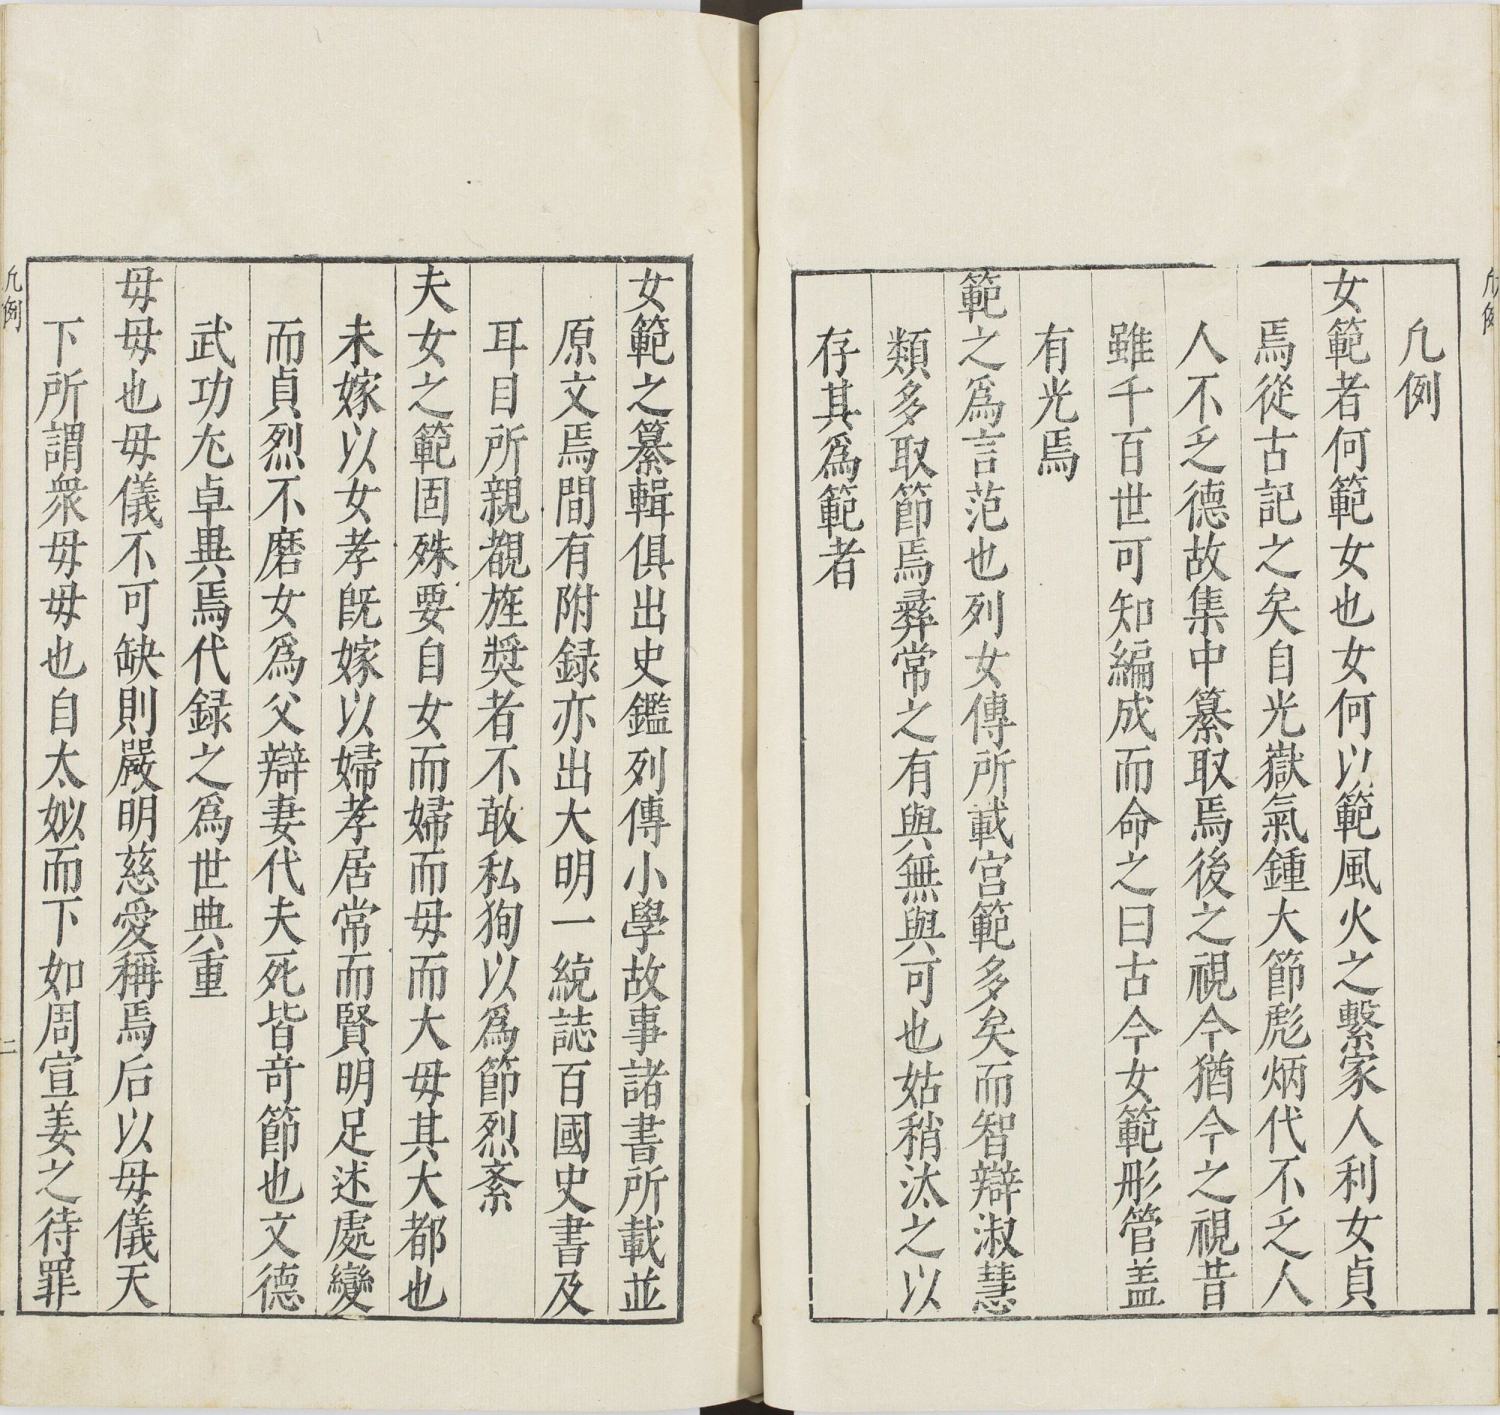 凢例
女範者何範女也女何以範風火之繫家人利女貞
焉從古記之矣自光嶽氣鍾大節彪炳代不乏人
人不乏德故集中纂取焉後之視今猶今之視昔
雖千百世可知編成而命之曰古今女範形管盖
有光焉
範之爲言范也列女傳所載宫範多矣而智辯淑慧
類多取節焉彞常之有與無與可也姑稍汰之以
存其爲範者
凢例
女範之纂輯俱出史鑑列傳小學故事諸書所載並
原文焉間有附録亦出大明一統誌百國史書及
耳目所親覩旌奬者不敢私狥以爲節烈紊
夫女之範固殊要自女而婦而母而大母其大都也
未嫁以女孝旣嫁以婦孝居常而賢明足述處變
而貞烈不磨女爲父辯妻代夫死皆竒節也文德
武功尢卓異焉代録之爲世典重
母母也母儀不可缺則嚴明慈愛稱焉后以母儀天
下所謂衆母母也自太姒而下如周宣姜之待罪
凢例
二